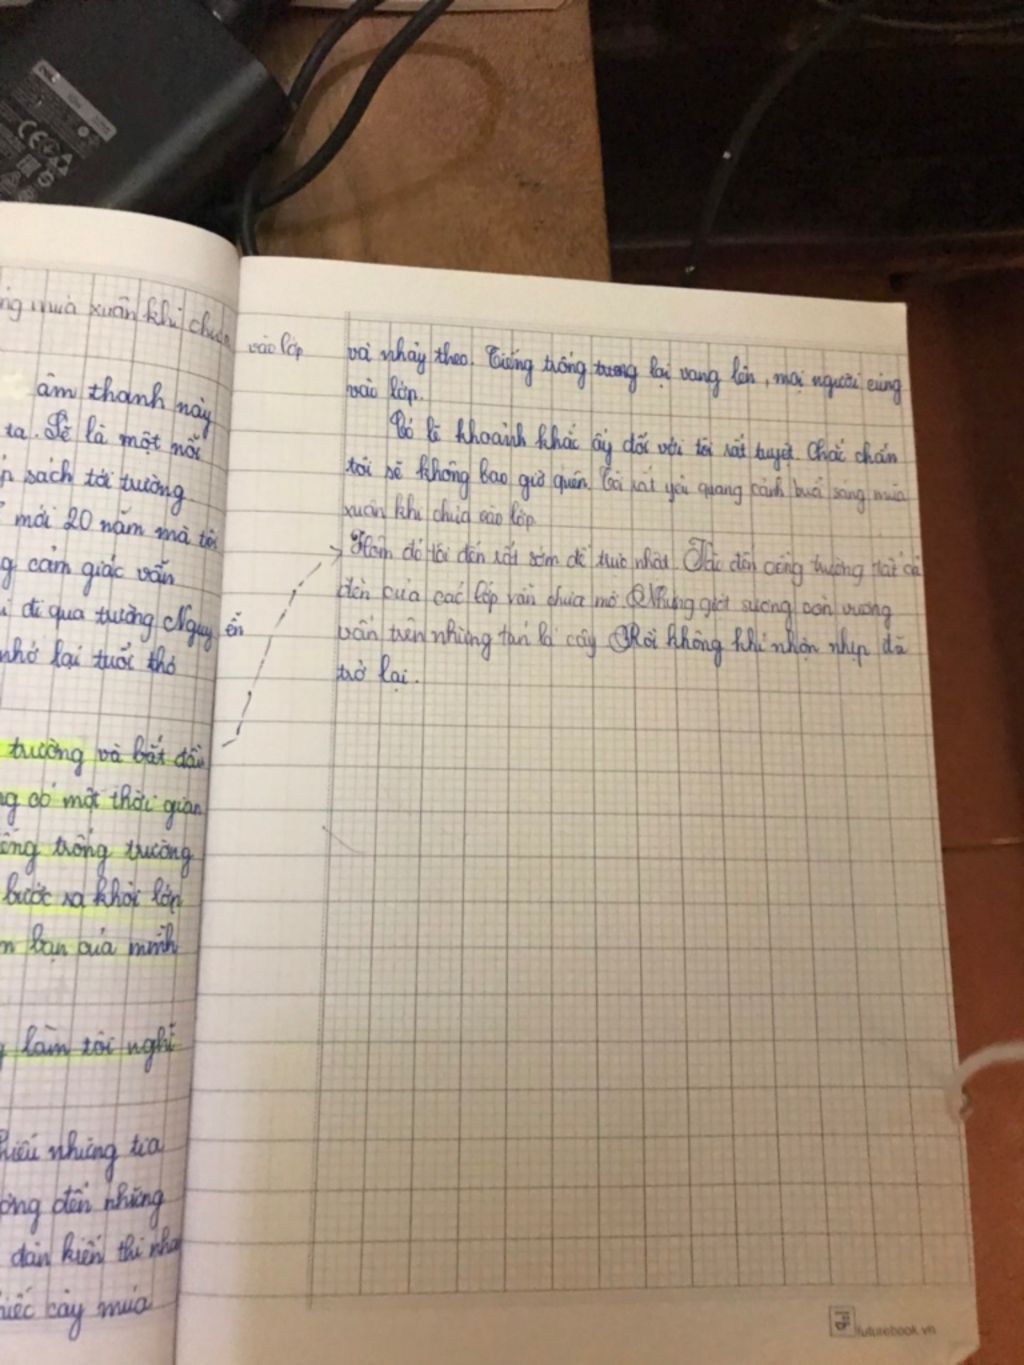 mùa xuân khi chưa vào lớp
âm thanh này
ta. Sẽ là một nỗi
sách tới trường
mới 20 năm mà tôi
cảm giác vẫn
đi qua trường Nguyễn
nhớ lại tuổi thơ
trường và bắt đầu
có một thời gian
trống trường
bước ra khỏi lớp
bạn của mình
làm tôi nghĩ
những tia
đến những
đàn kiến thi nhau
cày mùa
và nhảy theo. Tiếng trống trương lại vang lên, mọi người cùng
vào lớp.
Có lẽ khoảnh khắc ấy đối với tôi rất tuyệt. Chắc chắn
tôi sẽ không bao giờ quên. Tôi rất yêu quang cảnh buổi sáng mùa
xuân khi chưa vào lớp
Hôm đó tôi đến rất sớm để trực nhật. đến cổng trường tất cả
đèn của các lớp vẫn chưa mở. Những giọt sương còn vương
vấn trên những tán lá cây. Rồi không khí nhộn nhịp đã
trở lại.
futurebook.vn